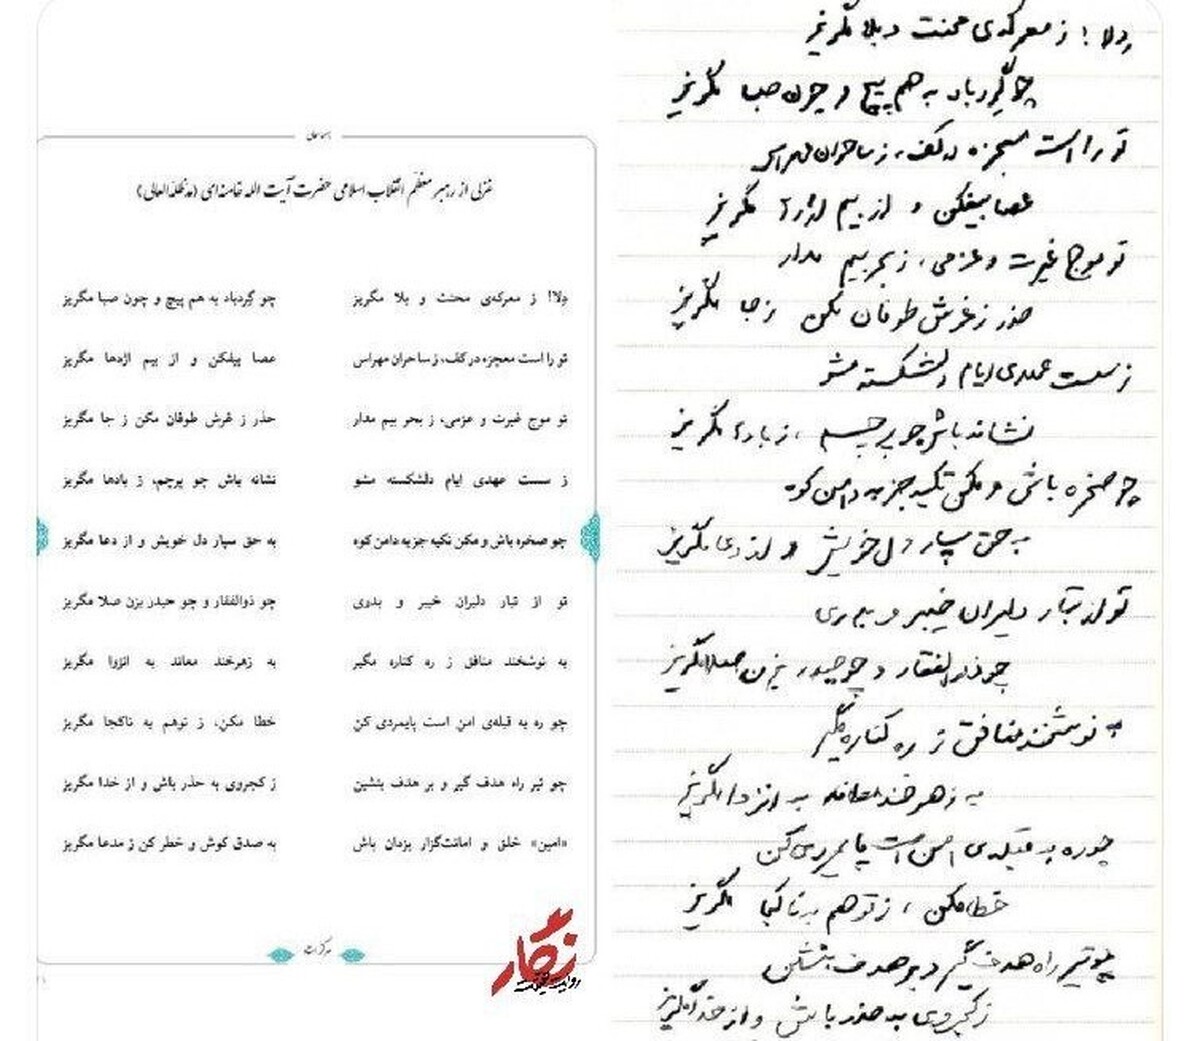 بسمه تعالی
غزلی از رهبر معظّم انقلاب اسلامی حضرت آیت الله خامنه‌ای (مدظلّه‌العالی)
دِلا! ز معرکه‌ی محنت و بلا مگریز
چو گِردباد به هم پیچ و چون صبا مگریز
تو را است معجزه در کف، ز ساحران مهراس
عصا بیفکن و از بیم اژدها مگریز
تو موج غیرت و عزمی، ز بحر بیم مدار
حذر ز غرش طوفان مکن ز جا مگریز
ز سست عهدی ایام دلشکسته مشو
نشانه باش چو پرچم، ز بادها مگریز
چو صخره باش و مکن تکیه جز به دامن کوه
به حق سپار دل خویش و از دعا مگریز
تو از تبار دلیران خیبر و بدری
چو ذوالفقار و چو حیدر بزن صلا مگریز
به نوشخند منافق ز ره کناره مگیر
به زهرخند معاند به انزوا مگریز
چو ره به قبله‌ی امن است پایمردی کن
خطا مکن، ز توهم به ناکجا مگریز
چو تیر راه هدف گیر و بر هدف بنشین
ز کجروی به حذر باش و از خدا مگریز
«امین» خلق و امانت‌گزار یزدان باش
به صدق کوش و خطر کن ز مدعا مگریز
نگار
دلا! ز معرکه‌ی محنت و بلا مگریز
چو گِردباد به هم پیچ و چون صبا مگریز
تو را است معجزه در کف، ز ساحران مهراس
عصا بیفکن و از بیم اژدها مگریز
تو موج غیرت و عزمی، ز بحر بیم مدار
حذر ز غرش طوفان مکن ز جا مگریز
ز سست عهدی ایام دلشکسته مشو
نشانه باش چو پرچم، ز بادها مگریز
چو صخره باش و مکن تکیه جز به دامن کوه
به حق سپار دل خویش و از دعا مگریز
تو از تبار دلیران خیبر و بدری
چو ذوالفقار و چو حیدر بزن صلا مگریز
به نوشخند منافق ز ره کناره مگیر
به زهرخند معاند به انزوا مگریز
چو ره به قبله‌ی امن است پایمردی کن
خطا مکن، ز توهم به ناکجا مگریز
چو تیر راه هدف گیر و بر هدف بنشین
ز کجروی به حذر باش و از خدا مگریز